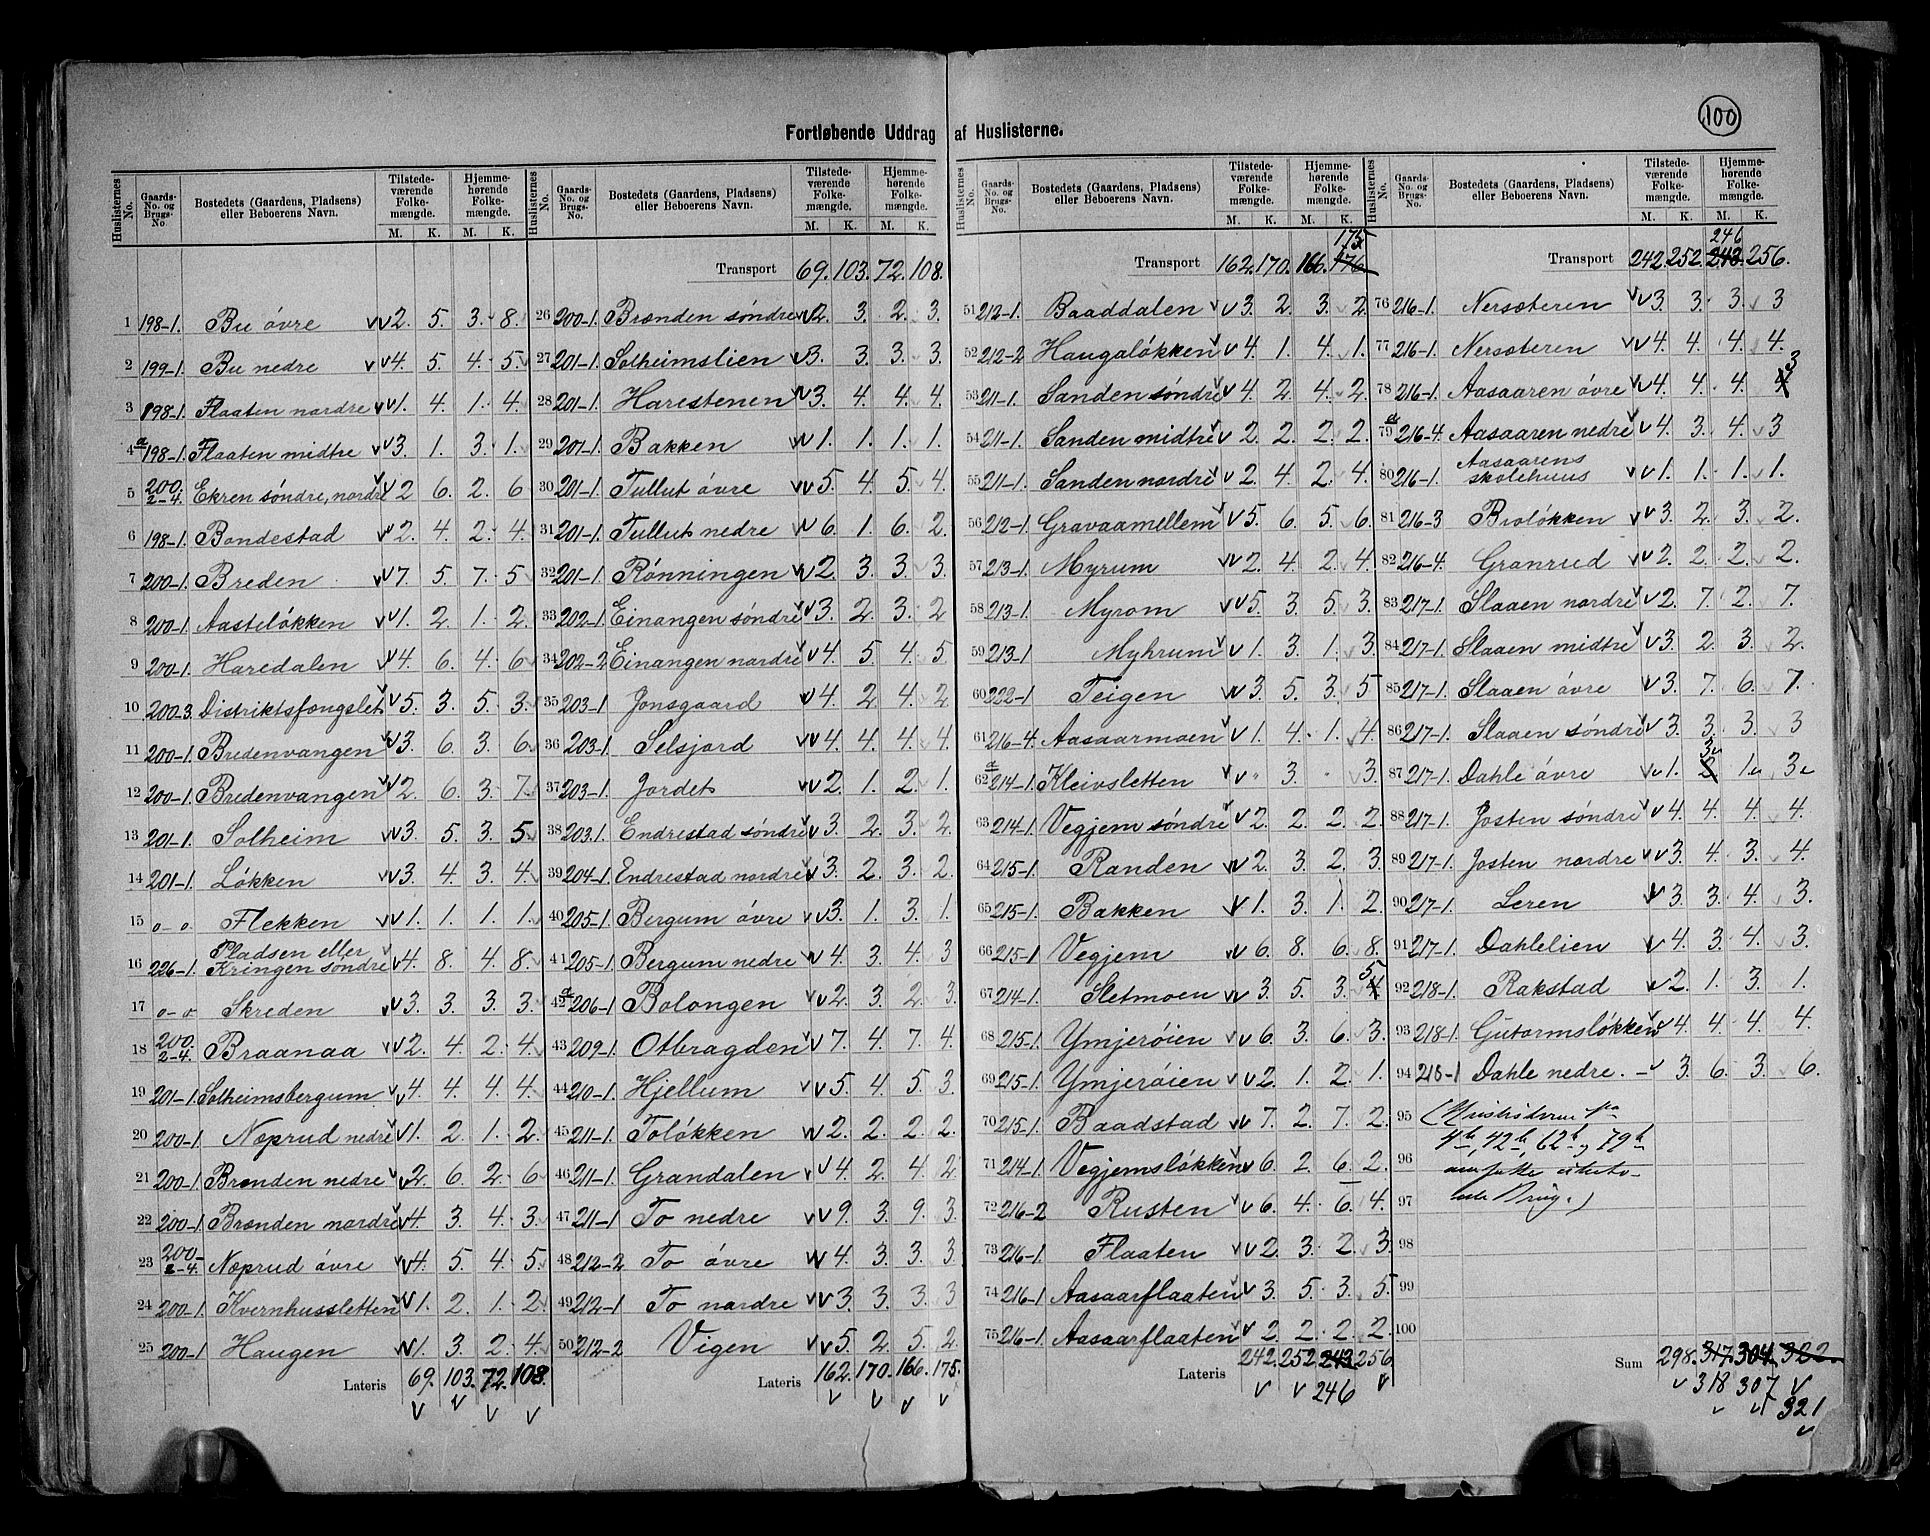 100
Fortløbende Uddrag af Huslisterne.
Huslisternes No. Gaards-No. og Brugs-No. Bostedets (Gaardens, Pladsens) eller Beboerens Navn. Tilstedeværende Folkemængde. M. K. Hjemmehørende Folkemængde. M. K.
1 198-1. Bu øvre 2. 5. 3. 8.
2 199-1. Bu nedre 4. 5. 4. 5.
3 198-1. Flaaten nordre 1. 4. 1. 4.
4a 198-1. Flaaten midtre 3. 1. 3. 1.
5 200 2-4. Ekren søndre, nordre 2 6. 2. 6
6 198-1. Bondestad 2. 4. 2. 4.
7 200-1. Breden 7. 5. 7. 5
8 200-1. Aasteløkken 1. 2. 1. 2.
9 200-1. Haredalen 4. 6. 4. 6
10 200-3. Distriktsfængslet 5. 3. 5. 3.
11 200-1. Bredenvangen 3. 6. 3. 6
12 200-1. Bredenvangen 2. 6. 3. 7.
13 201-1. Solheim 3. 5. 3. 5
14 201-1. Løkken 3. 4. 3. 4.
15 o-o Flekken 1. 1. 1. 1.
16 226-1. Pladsen eller Kringen søndre 4. 8. 4. 8.
17 o-o Skreden 3. 3. 3. 3.
18 200. 2-4. Braanaa 2. 4. 2. 4.
19 201-1. Solheimsbergum 4. 4. 4. 4.
20 200-1. Næprud nedre 1. 2. 1. 2.
21 200-1. Brænden nedre 2. 6. 2. 6
22 200-1. Brænden nordre 4. 3. 4. 3.
23 200- 2-4. Næprud øvre 4. 5. 4. 5.
24 200-1. Kvernhussletten 1. 2. 1. 2.
25 200-1 Haugen 1. 3. 2. 4.
Lateris 69. 103. 72. 108.
Huslisternes No. Gaards-No. og Brugs-No. Bostedets (Gaardens, Pladsens) eller Beboerens Navn. Tilstedeværende Folkemængde. M. K. Hjemmehørende Folkemængde. M. K.
Transport 69. 103. 72. 108.
26 200-1. Brænden søndre 2. 3. 2. 3.
27 201-1. Solheimslien 3. 3. 3. 3.
28 201-1. Harestenen 3. 4. 4. 4.
29 201-1. Bakken 1. 1. 1. 1.
30 201-1. Tullut øvre 5. 4. 5. 4.
31 201-1. Tullut nedre 6. 1. 6. 2.
32 201-1. Rønningen 2. 3. 3. 3.
33 202-1. Einangen søndre 3. 2. 3. 2
34 202-2 Einangen nordre 4. 5 4. 5
35 203-1 Jonsgaard 4. 2 4. 2
36 203-1. Selsjord 4. 4. 4. 4.
37 203-1. Jordet 2. 1. 2. 1.
38 203.1. Endrestad søndre 3. 2. 3. 2.
39 204-1. Endrestad nordre 3. 2. 3. 2.
40 205-1. Bergum øvre 3. 1. 3. 1
41 205-1. Bergum nedre 4. 3 4. 3
42a 206-1. Bolongen 2. 3. 2. 3.
43 209-1. Otbragden 7. 4. 7. 4
44 210-1. Hjellum 5. 4 5. 3
45 211-1. Toløkken 2. 2. 2. 2.
46 211-1. Grandalen 4. 2 4. 2
47 211-1 To nedre 9. 3. 9. 3.
48 212-2 To øvre 4. 3. 3. 3
49 212-1 To nordre 3. 3. 3. 3
50 212-2 Vigen 5. 2. 5. 2.
Lateris 162. 170. 166. 175.
Huslisternes No. Gaards-No. og Brugs-No. Bostedets (Gaardens, Pladsens) eller Beboerens Navn. Tilstedeværende Folkemængde. M. K. Hjemmehørende Folkemængde. M. K.
175
Transport 162. 170. 166. 176
51 212-1. Baaddalen 3. 2. 3. 2.
52 212-2 Haugaløkken 4. 1. 4. 1.
53 211-1. Sanden søndre 4. 2 4. 2
54 211-1. Sanden midtre 2. 2. 2. 2.
55 211-1. Sanden nordre 2. 4. 2 4.
56 212-1. Gravaamellem 5. 6. 5. 6.
57 213-1. Myrum 2. 4. 2 4.
58 213-1. Myrom 5. 3. 5 3.
59 213-1 Myhrum 1. 3 1. 3.
60 222-1 Teigen 3. 5. 3. 5
61 216-4. Aasaarmoen 1. 4. 1. 4.
62a 214-1. Kleivsletten " 3. 3.
63 214-1. Vegjem søndre 2. 2. 2. 2
64 215-1. Randen 2. 3. 2. 3.
65 215-1. Bakken 1. 3. 1. 2
66 215-1 Vegjem 6. 8. 6. 8.
67 214-1. Sletmoen 3. 5. 3. 4 5
68 215-1. Ymjerøien 6. 3 6. 3.
69 215-1. Ymjerøien 2. 1. 2. 1.
70 215-1. Baadstad 7. 2. 7. 2.
71 214-1. Vegjemsløkken 6. 2 6 2.
72 216-2 Rusten 6. 4. 6. 4
73 216-1. Flaaten 2. 3. 2. 3.
74 216-1. Aasaarflaaten 3. 5. 3. 5
75 216-1. Aasaarflaaten 2. 2. 2. 2.
Lateris 242. 252. 243 256.
246
Huslisternes No. Gaards-No. og Brugs-No. Bostedets (Gaardens, Pladsens) eller Beboerens Navn. Tilstedeværende Folkemængde. M. K. Hjemmehørende Folkemængde. M. K.
246
Transport 242. 252. 243. 256.
76 216-1. Nersæteren 3. 3. 3. 3
77 216-1. Nersæteren 4. 4. 4. 4.
78 216-1. Aasaaren øvre 4. 4. 4. 4 3
79a 216-4. Aasaaren nedre 4. 3. 4. 3
80 216-1. Aasaarens skolehuus 1. 1. 1. 1.
81 216-3 Broløkken 3. 2. 3. 2.
82 216-4. Granrud 2. 2. 2. 2.
83 217-1. Slaaen nordre 2. 7. 2. 7.
84 217-1. Slaaen midtre 3. 2. 3. 2.
85 217-1. Slaaen øvre 3. 7. 6. 7.
86 217-1. Slaaen søndre 3. 3. 3. 3
87 217-1. Dahle øvre 1. 2 3 1 3
88 217-1. Josten søndre 4. 4. 4. 4
89 217-1. Josten nordre 3. 4. 3. 4
90 217-1. Leren 3. 3. 4. 3.
91 217-1. Dahlelien 4. 3. 4. 3.
92 218-1. Rakstad 2. 1. 3. 1.
93 218-1. Gutormsløkken 4. 4. 4. 4
94 218-1 Dahle nedre. 3. 6. 3. 6.
95 (Huslisterne paa
96 4b, 42b, 62b, 79b
97
98
99
100
Sum 298. 317. 304. 322.
318 307
321